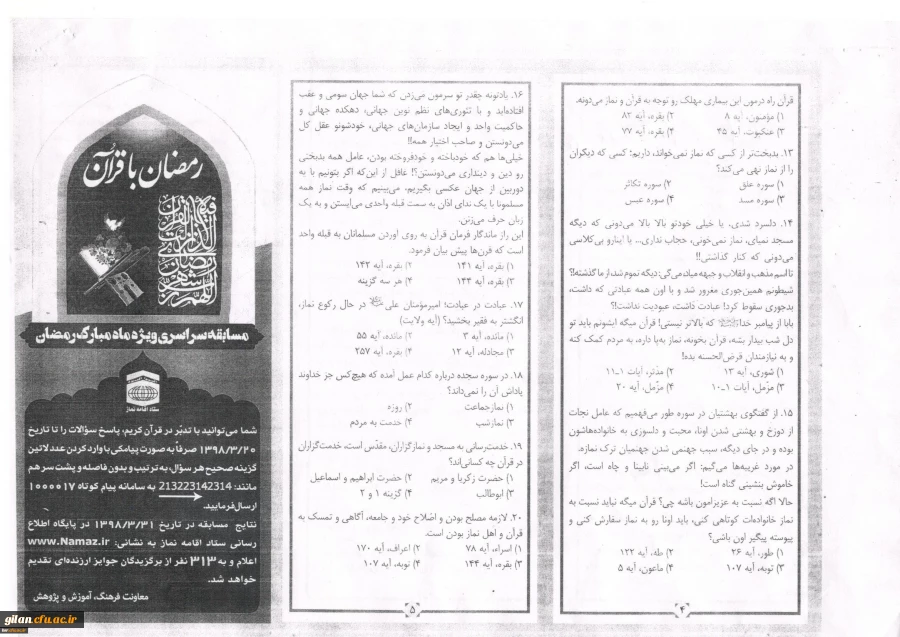 قرآن راه درمون این بیماری مهلک رو توجه به قرآن و نماز می‌دونه.
۱) مؤمنون، آیه ۸ ۲) بقره، آیه ۸۲
۳) عنکبوت، آیه ۴۵ ۴) بقره، آیه ۷۷
۱۳. بدبخت‌تر از کسی که نماز نمی‌خواند، داریم: کسی که دیگران
را از نماز نهی می‌کند؟
۱) سوره علق ۲) سوره تکاثر
۳) سوره مسد ۴) سوره عبس
۱۴. دلسرد شدی، یا خیلی خودتو بالا بالا می‌دونی که دیگه
مسجد نمیای، نماز نمی‌خونی، حجاب نداری... یا اینارو بی‌کلاسی
می‌دونی که کنار گذاشتی!!
تا اسم مذهب و انقلاب و جبهه میاد می‌گی: دیگه تموم شد، از ما گذشته!؟
شیطونم همین‌جوری مغرور شد و با اون همه عبادتی که داشت،
بدجوری سقوط کرد! عبادت داشت، عبودیت نداشت!؟
بابا از پیامبر خدا که بالاتر نیستی! قرآن میگه ایشونم باید تو
دل شب بیدار بشه، قرآن بخونه، نماز به‌پا داره، به مردم کمک کنه
و به نیازمندان قرض‌الحسنه بده!
۱) شوری، آیه ۱۳ ۲) مدثر، آیات ۱ـ۱۱
۳) مزّمل، آیات ۱ـ۱۰ ۴) مزّمل، آیه ۲۰
۱۵. از گفتگوی بهشتیان در سوره طور می‌فهمیم که عامل نجات
از دوزخ و بهشتی شدن اونا، محبت و دلسوزی به خانواده‌هاشون
بوده و در جای دیگه، سبب جهنمی شدن جهنمیان ترک نمازه.
در مورد غریبه‌ها می‌گیم: اگر می‌بینی نابینا و چاه است، اگر
خاموش بنشینی گناه است!
حالا اگه نسبت به عزیزامون باشه چی؟ قرآن میگه نباید نسبت به
نماز خانواده‌ات کوتاهی کنی، باید اونا رو به نماز سفارش کنی و
پیوسته پیگیر اون باشی؟
۱) طور، آیه ۲۶ ۲) طه، آیه ۱۳۲
۳) توبه، آیه ۱۰۷ ۴) ماعون، آیه ۵
۴
۱۶. یادتونه چقدر تو سرمون می‌زدن که شما جهان سومی و عقب
افتاده‌اید و با تئوری‌های نظم نوین جهانی، دهکده جهانی و
حاکمیت واحد و ایجاد سازمان‌های جهانی، خودشونو عقل کل
می‌دونستن و صاحب اختیار همه!!
خیلی‌ها هم که خودباخته و خودفروخته بودن، عامل همه بدبختی
رو دین و دینداری می‌دونستن؟! غافل از این‌که اگر بتونیم با یه
دوربین از جهان عکسی بگیریم، می‌بینیم که وقت نماز همه
مسلمونا با یک ندای اذان به سمت قبله واحدی می‌ایستن و به یک
زبان حرف می‌زنن.
این راز ماندگار فرمان قرآن به روی آوردن مسلمانان به قبله واحد
است که قرن‌ها پیش بیان فرمود.
۱) بقره، آیه ۱۴۱ ۲) بقره، آیه ۱۴۲
۳) بقره، آیه ۱۴۴ ۴) هر سه گزینه
۱۷. عبادت در عبادت؛ امیرمؤمنان علی در حال رکوع نماز،
انگشتر به فقیر بخشید؟ (آیه ولایت)
۱) مائده، آیه ۳ ۲) مائده، آیه ۵۵
۳) مجادله، آیه ۱۲ ۴) بقره، آیه ۲۵۷
۱۸. در سوره سجده درباره کدام عمل آمده که هیچ‌کس جز خداوند
پاداش آن را نمی‌داند؟
۱) نمازجماعت ۲) روزه
۳) نمازشب ۴) خدمت به مردم
۱۹. خدمت‌رسانی به مسجد و نمازگزاران، مقدّس است، خدمت‌گزاران
در قرآن چه کسانی‌اند؟
۱) حضرت زکریا و مریم ۲) حضرت ابراهیم و اسماعیل
۳) ابوطالب ۴) گزینه ۱ و ۲
۲۰. لازمه مصلح بودن و اصلاح خود و جامعه، آگاهی و تمسک به
قرآن و اهل نماز بودن است.
۱) اسراء، آیه ۷۸ ۲) اعراف، آیه ۱۷۰
۳) بقره، آیه ۱۴۴ ۴) توبه، آیه ۱۰۷
۵
رمضان با قرآن
مسابقه سراسری ویژه ماه مبارک رمضان
ستاد اقامه نماز
شما می‌توانید با تدبّر در قرآن کریم، پاسخ سؤالات را تا تاریخ
۱۳۹۸/۳/۲۰ صرفاً به صورت پیامکی با وارد کردن عدد لاتین
گزینه صحیح هر سؤال، به ترتیب و بدون فاصله و پشت سر هم
مانند: 213223142314 به سامانه پیام کوتاه ۱۰۰۰۰۱۷
ارسال فرمایید.
نتایج مسابقه در تاریخ ۱۳۹۸/۳/۳۱ در پایگاه اطلاع
رسانی ستاد اقامه نماز به نشانی: www.Namaz.ir
اعلام و به ۳۱۳ نفر از برگزیدگان جوایز ارزنده‌ای تقدیم
خواهد شد.
معاونت فرهنگ، آموزش و پژوهش
gilan.cfu.ac.ir